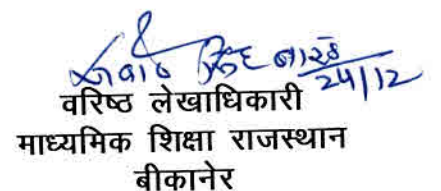 24/12
वरिष्ठ लेखाधिकारी
माध्यमिक शिक्षा राजस्थान
बीकानेर